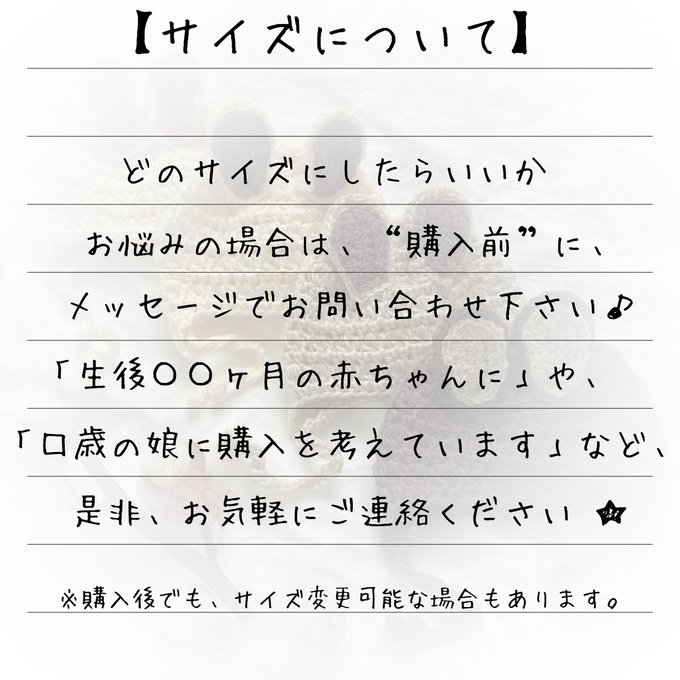 【サイズについて】
どのサイズにしたらいいか
お悩みの場合は、“購入前”に、
メッセージでお問い合わせ下さい♪
「生後〇〇ヶ月の赤ちゃんに」や、
「口歳の娘に購入を考えています」など、
是非、お気軽にご連絡ください ★
※購入後でも、サイズ変更可能な場合もあります。